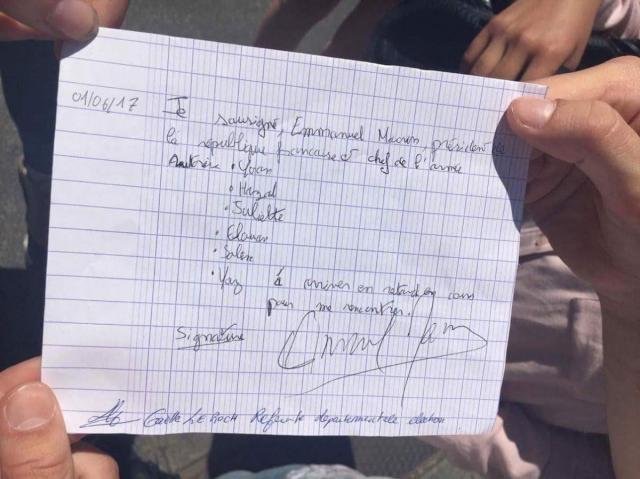 01/06/17 Je sousigné, Emmanuel Macron, président de
la république francaise et chef de l'armée
Autorise • Yvan
• Hazal
• Juliette
• Elouan
• Solène
• Yaz à arriver en retard en cours
pour me rencontrer.
Signature
Gaëlle LE ROCH Référente départementale élection